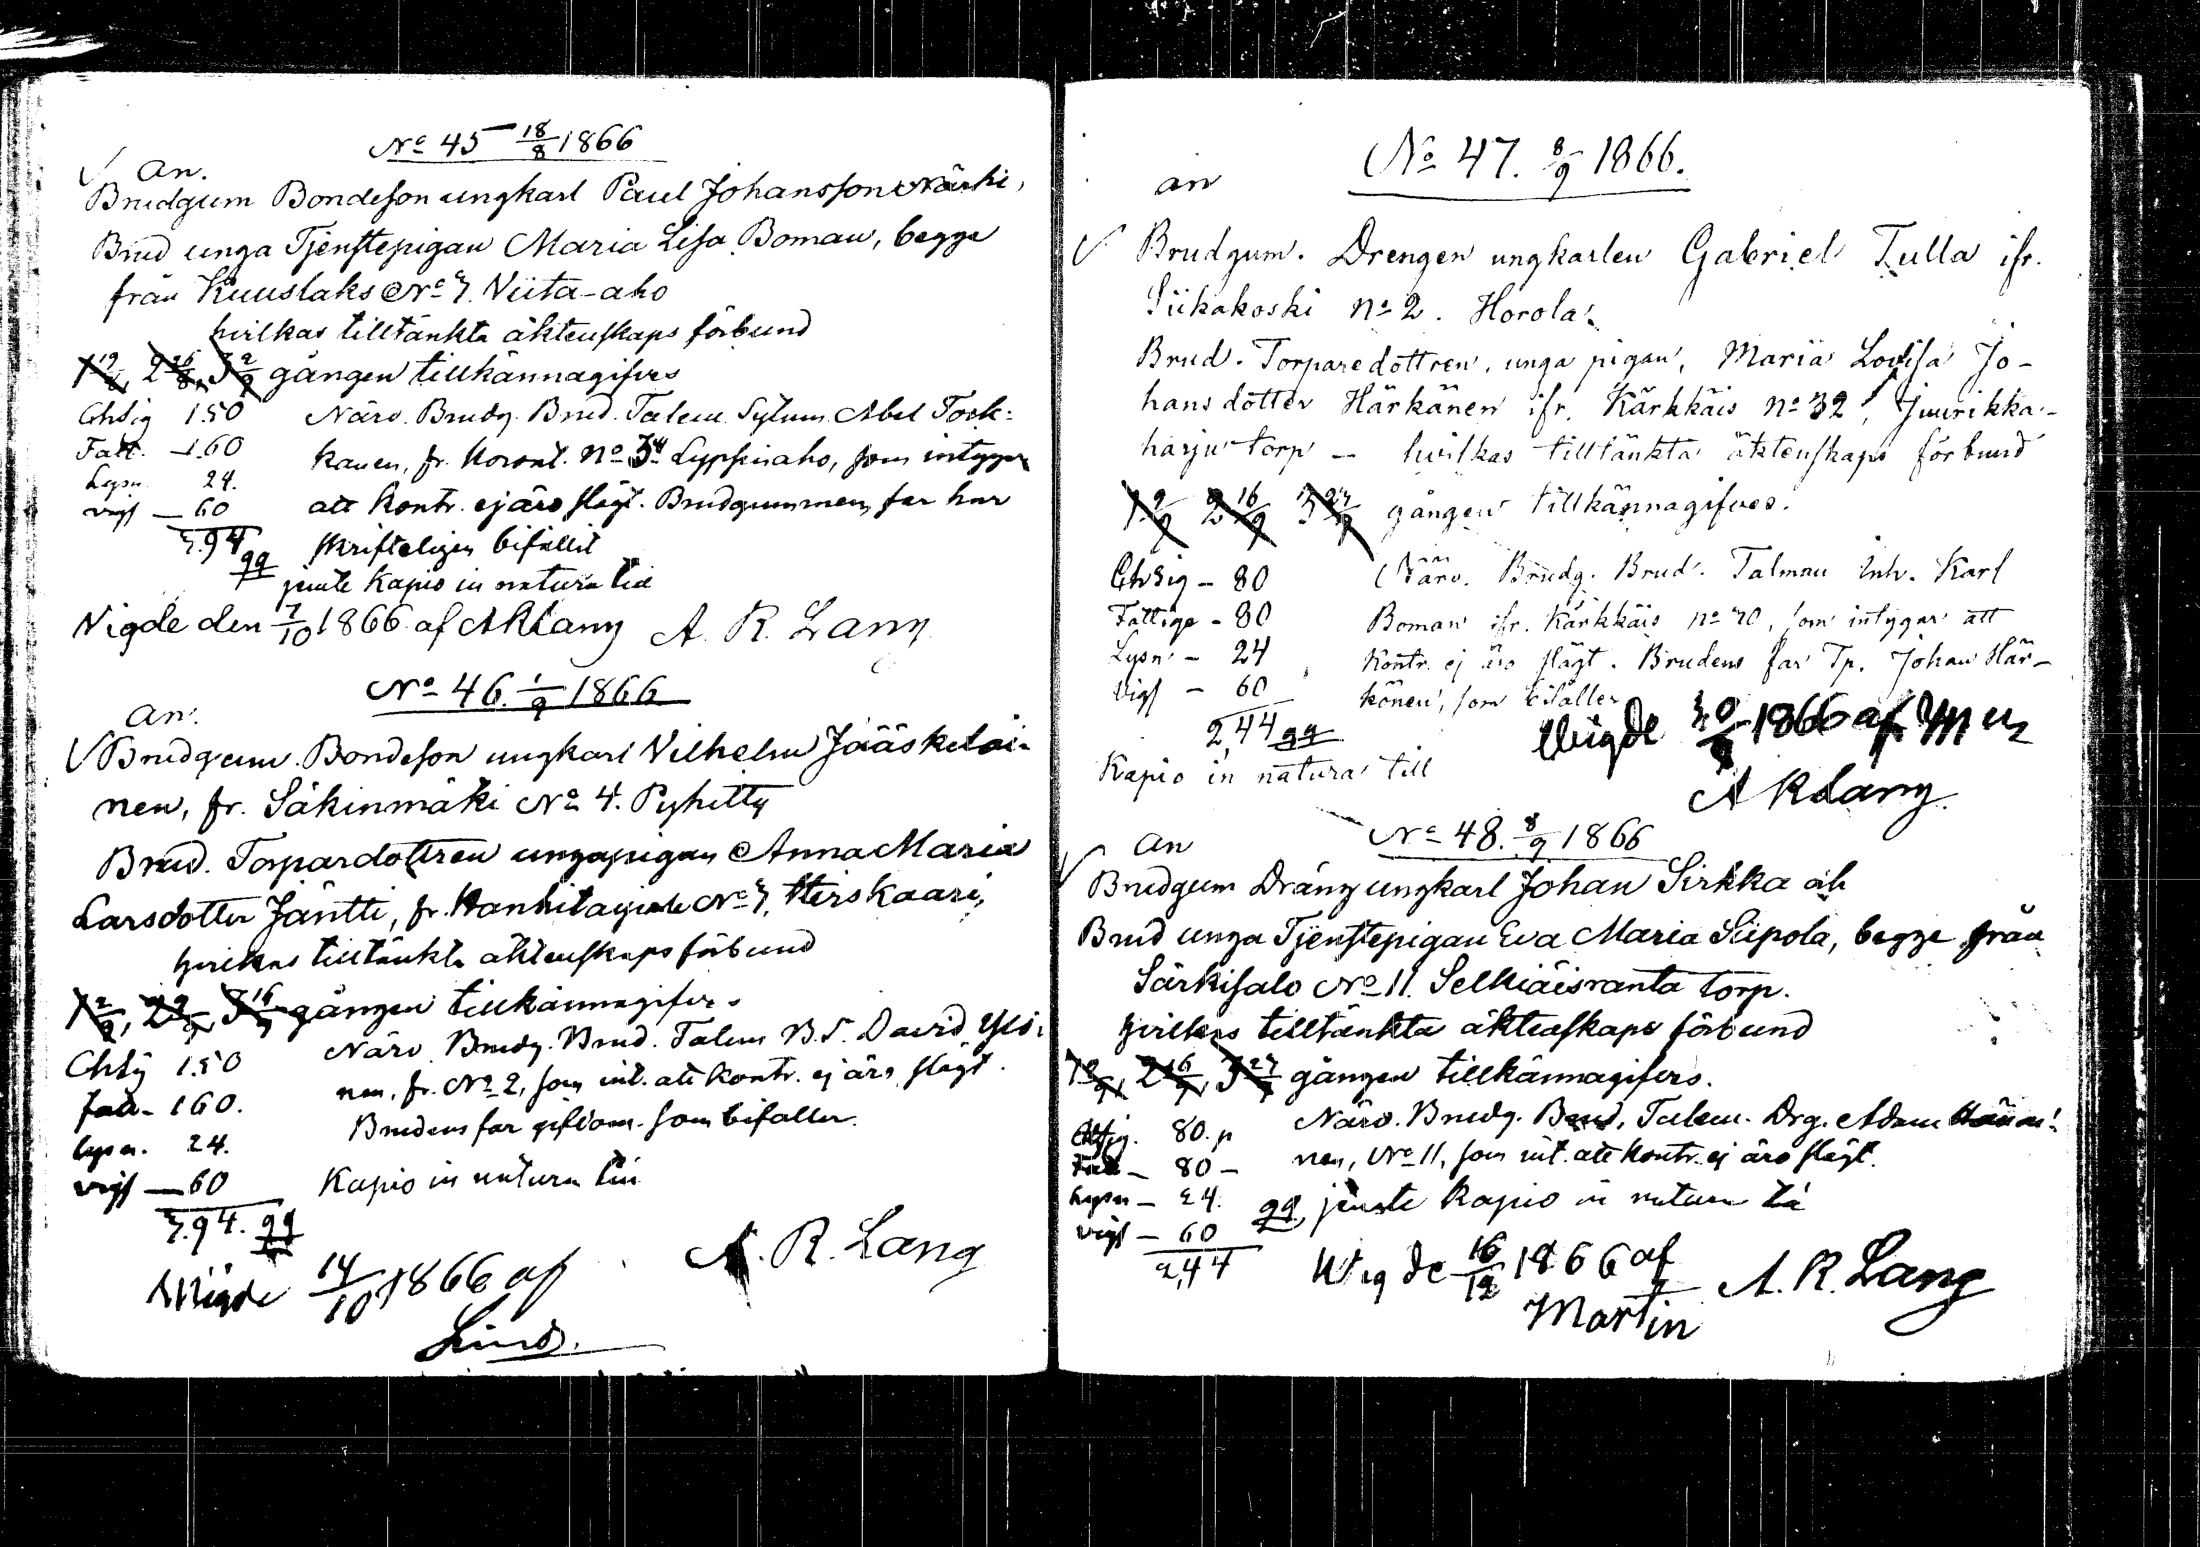 No 45 18/8 1866
An.
Brudgum Bondeson ungkarl Paul Johansson Närhi,
Brud unga Tjenstepigan Maria Lisa Boman, begge
från Kuuslaks No 7. Viita-aho
hvilkas tilltänkta äktenskaps förbund
1 19/8, 2 26/8, 3 2/9 gången tillkännagifves
Chsig 1.50 Närv. Brudg. Brud. Talem. Sytum. Abel Tosk:
Fatt. 1.60 kanen, fr. No 34 Lyppinaho, som intygar
Lysn 24. att Kontr. ej äro slägt. Brudgummens far har
vigs — 60 skrifteligen bifallit
3.94 gg
jemte Kapio in natura till
Vigde den 7/10 1866 af ARLang A. R. Lang
No 46. 1/9 1866
An.
Brudgum. Bondeson ungkarl Vilhelm Jääskeläi-
nen, fr. Säkinmäki No 4. Pyhitty
Brud. Torpardottren unga pigan Anna Maria
Larsdotter Jäntti, fr. No 7,
hvilkas tilltänkta äktenskaps förbund
1 2/9, 2 9/9, 3 16/9 gången tillkännagifves
Chsig 1.50 Närv. Brudg. Brud. Talem B.S. David Ylö:
Fatt - 1.60. nen, fr. No 2, som int. att Kontr. ej äro slägt.
Lysn. 24. Brudens far giftom. som bifaller.
vigs — 60 Kapio in natura till
3.94. gg
A. R. Lang
Wigde 14/10 1866 af
Lind.
No 47. 8/9 1866.
an
Brudgum. Drengen ungkarlen Gabriel Tulla ifr.
Siikakoski no 2. Horola.
Brud. Torparedottren, unga pigan, Maria Lovisa Jo-
hansdotter Härkänen ifr. Kärkkäis no 32, Juurikka-
harju torp — hvilkas tilltänkta äktenskaps förbund
1 9/9 2 16/9 3 23/9 gången tillkännagifves.
Chsig - 80 Närv. Brudg. Brud. Talman Inh. Karl
Fattige - 80 Boman ifr. Kärkkäis no 70, som intygar att
Lysn - 24 Kontr. ej äro slägt. Brudens far Tp. Johan Här-
Vigs - 60 könen, som bifaller
2,44 gg
Wigde 1866 af
Kapio in natura till
A R Lang.
No 48. 8/9 1866
An
Brudgum Dräng ungkarl Johan Sirkka och
Brud unga Tjenstepigan Eva Maria Siipola, begge från
Särkisalo No 11. Selkiäisranta torp.
hvilkas tilltänkta äktenskaps förbund
1 9/9, 2 16/9, 3 23/9 gången tillkännagifves.
Chsig. 80. p Närv. Brudg. Brud. Talem. Drg. Adam
Fatt - 80 - nen, No 11, som int. att Kontr. ej äro slägt.
Lysn - 24. gg, jemte Kapio in natura till
vigs - 60
2,44
Wigde 16/12 1866 af
Martin A. R. Lang